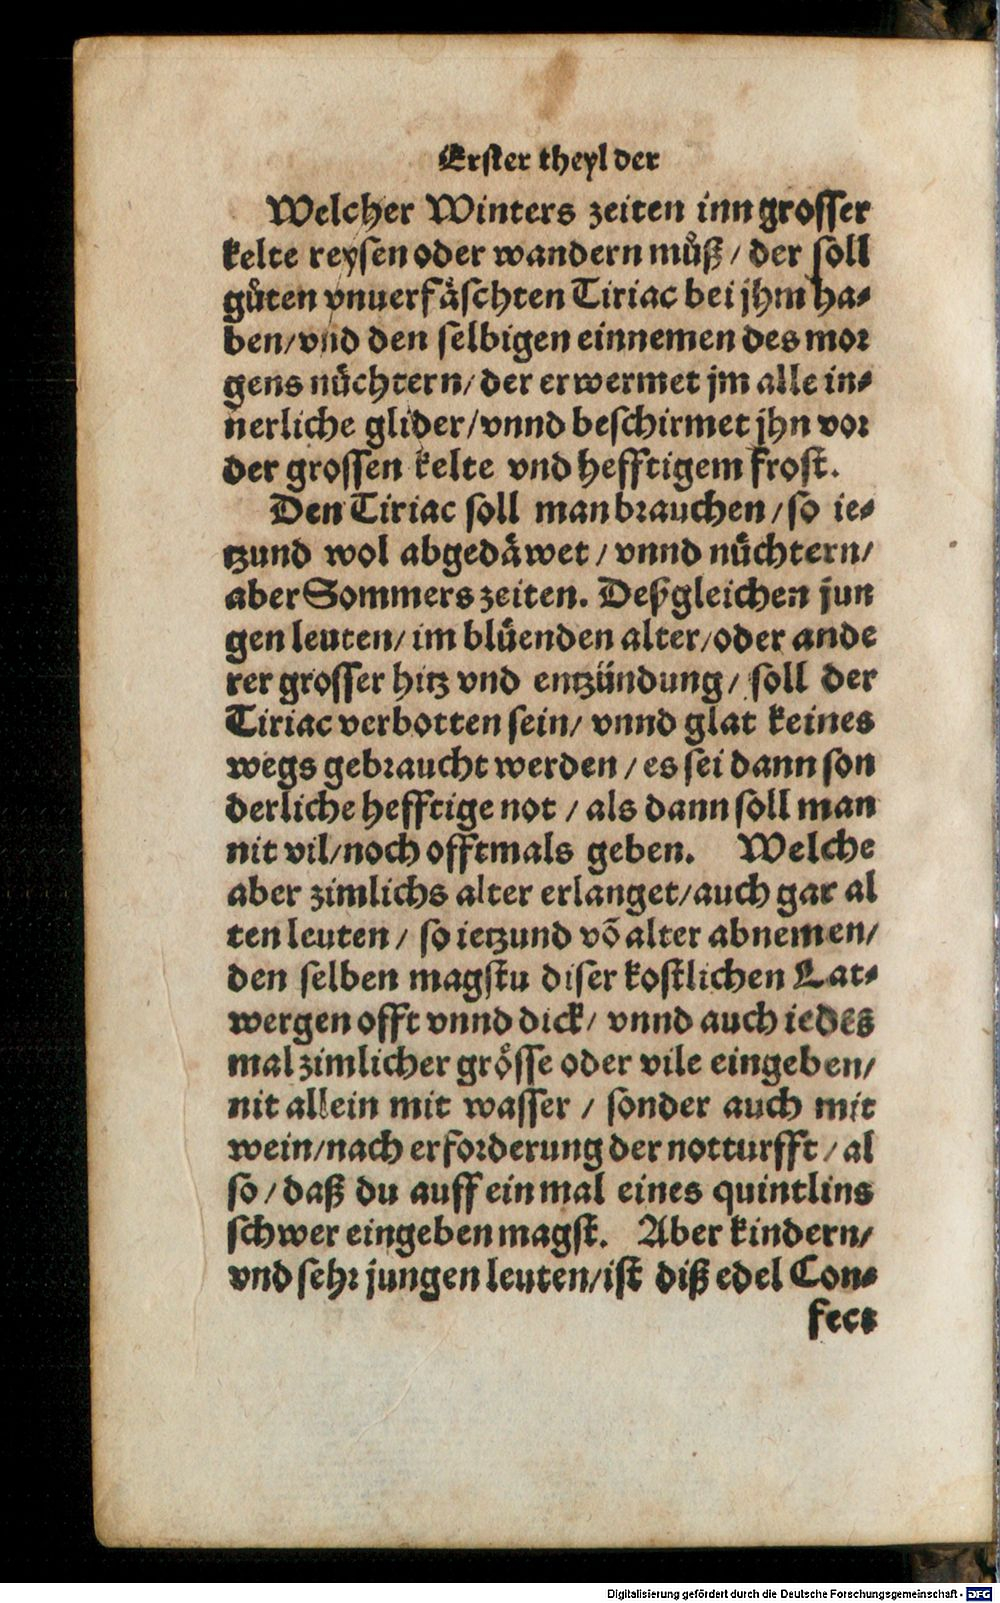 Erster theyl der
Welcher Winters zeiten inn grosser
kelte reysen oder wandern muͦß / der soll
guͦten vnuerfaͤschten Tiriac bei jhm ha⸗
ben/ vnd den selbigen einnemen des mor
gens nuͤchtern/ der erwermet jm alle in⸗
nerliche glider/ vnnd beschirmet jhn vor
der grossen kelte vnd hefftigem frost.
Den Tiriac soll man brauchen / so ie⸗
tzund wol abgedaͤwet / vnnd nuͤchtern/
aber Sommers zeiten. Deßgleichen jun
gen leuten/ im bluͤenden alter/ oder ande
rer grosser hitz vnd entzündung/ soll der
Tiriac verbotten sein/ vnnd glat keines
wegs gebraucht werden / es sei dann son
derliche hefftige not / als dann soll man
nit vil/ noch offtmals geben. Welche
aber zimlichs alter erlanget/ auch gar al
ten leuten / so ietzund võ alter abnemen/
den selben magstu diser kostlichen Lat⸗
wergen offt vnnd dick/ vnnd auch iedes
mal zimlicher groͤsse oder vile eingeben/
nit allein mit wasser / sonder auch mit
wein/ nach erforderung der notturfft / al
so / daß du auff ein mal eines quintlins
schwer eingeben magst. Aber kindern/
vnd sehr jungen leuten/ ist diß edel Con⸗
fect
Digitalisierung gefördert durch die Deutsche Forschungsgemeinschaft - DFG